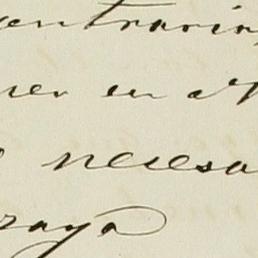 contrario
ner en el
necesa
raya